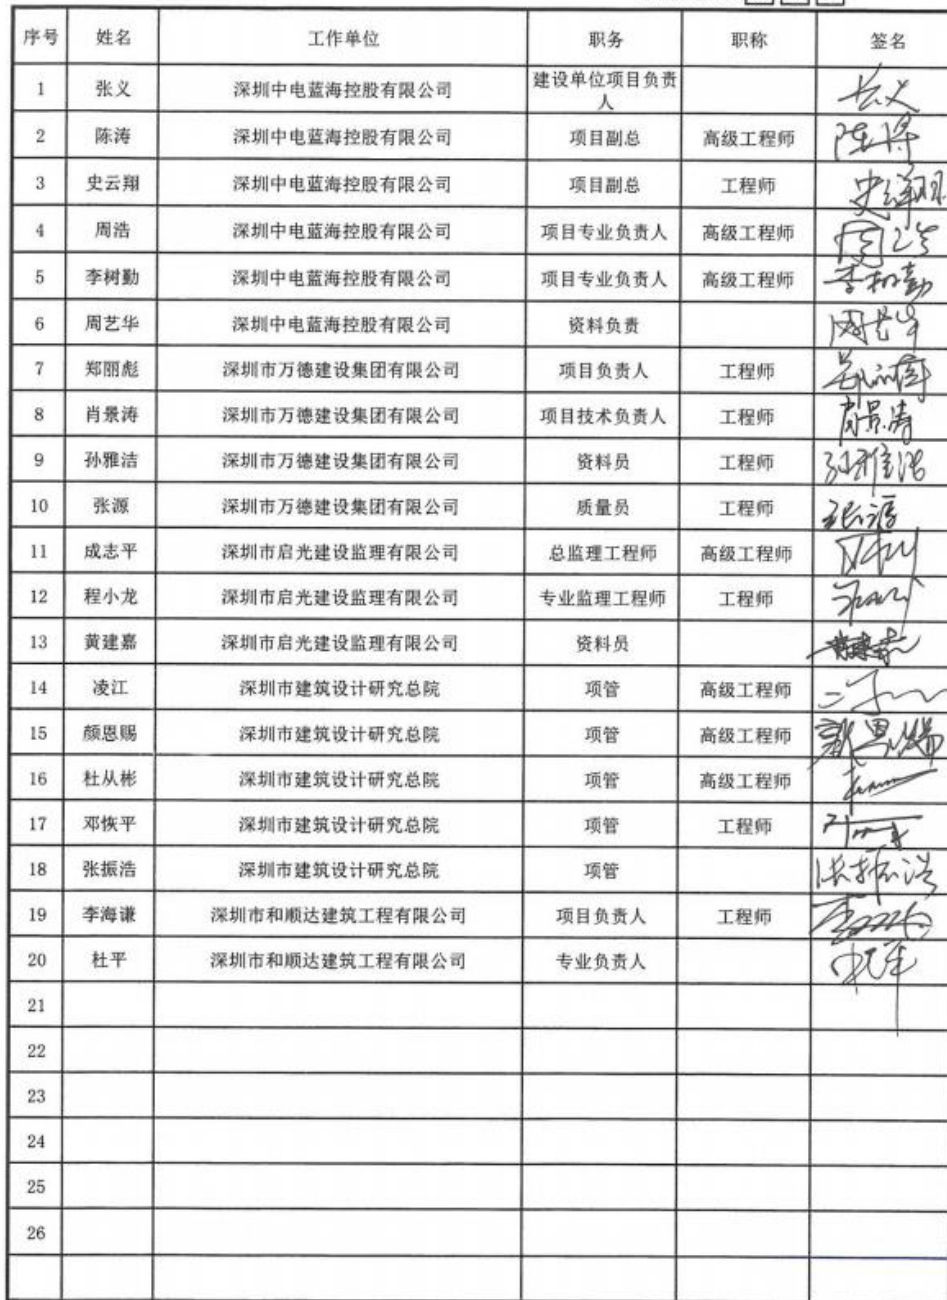 序号 姓名 工作单位 职务 职称 签名
1 张义 深圳中电蓝海控股有限公司 建设单位项目负责人 张义
2 陈涛 深圳中电蓝海控股有限公司 项目副总 高级工程师 陈涛
3 史云翔 深圳中电蓝海控股有限公司 项目副总 工程师 史云翔
4 周浩 深圳中电蓝海控股有限公司 项目专业负责人 高级工程师 周浩
5 李树勤 深圳中电蓝海控股有限公司 项目专业负责人 高级工程师 李树勤
6 周艺华 深圳中电蓝海控股有限公司 资料负责 周艺华
7 郑丽彪 深圳市万德建设集团有限公司 项目负责人 工程师
8 肖景涛 深圳市万德建设集团有限公司 项目技术负责人 工程师 肖景涛
9 孙雅洁 深圳市万德建设集团有限公司 资料员 工程师 孙雅洁
10 张源 深圳市万德建设集团有限公司 质量员 工程师 张源
11 成志平 深圳市启光建设监理有限公司 总监理工程师 高级工程师
12 程小龙 深圳市启光建设监理有限公司 专业监理工程师 工程师
13 黄建嘉 深圳市启光建设监理有限公司 资料员 黄建嘉
14 凌江 深圳市建筑设计研究总院 项管 高级工程师
15 颜恩赐 深圳市建筑设计研究总院 项管 高级工程师 颜恩赐
16 杜从彬 深圳市建筑设计研究总院 项管 高级工程师
17 邓恢平 深圳市建筑设计研究总院 项管 工程师
18 张振浩 深圳市建筑设计研究总院 项管 张振浩
19 李海谦 深圳市和顺达建筑工程有限公司 项目负责人 工程师
20 杜平 深圳市和顺达建筑工程有限公司 专业负责人
21
22
23
24
25
26